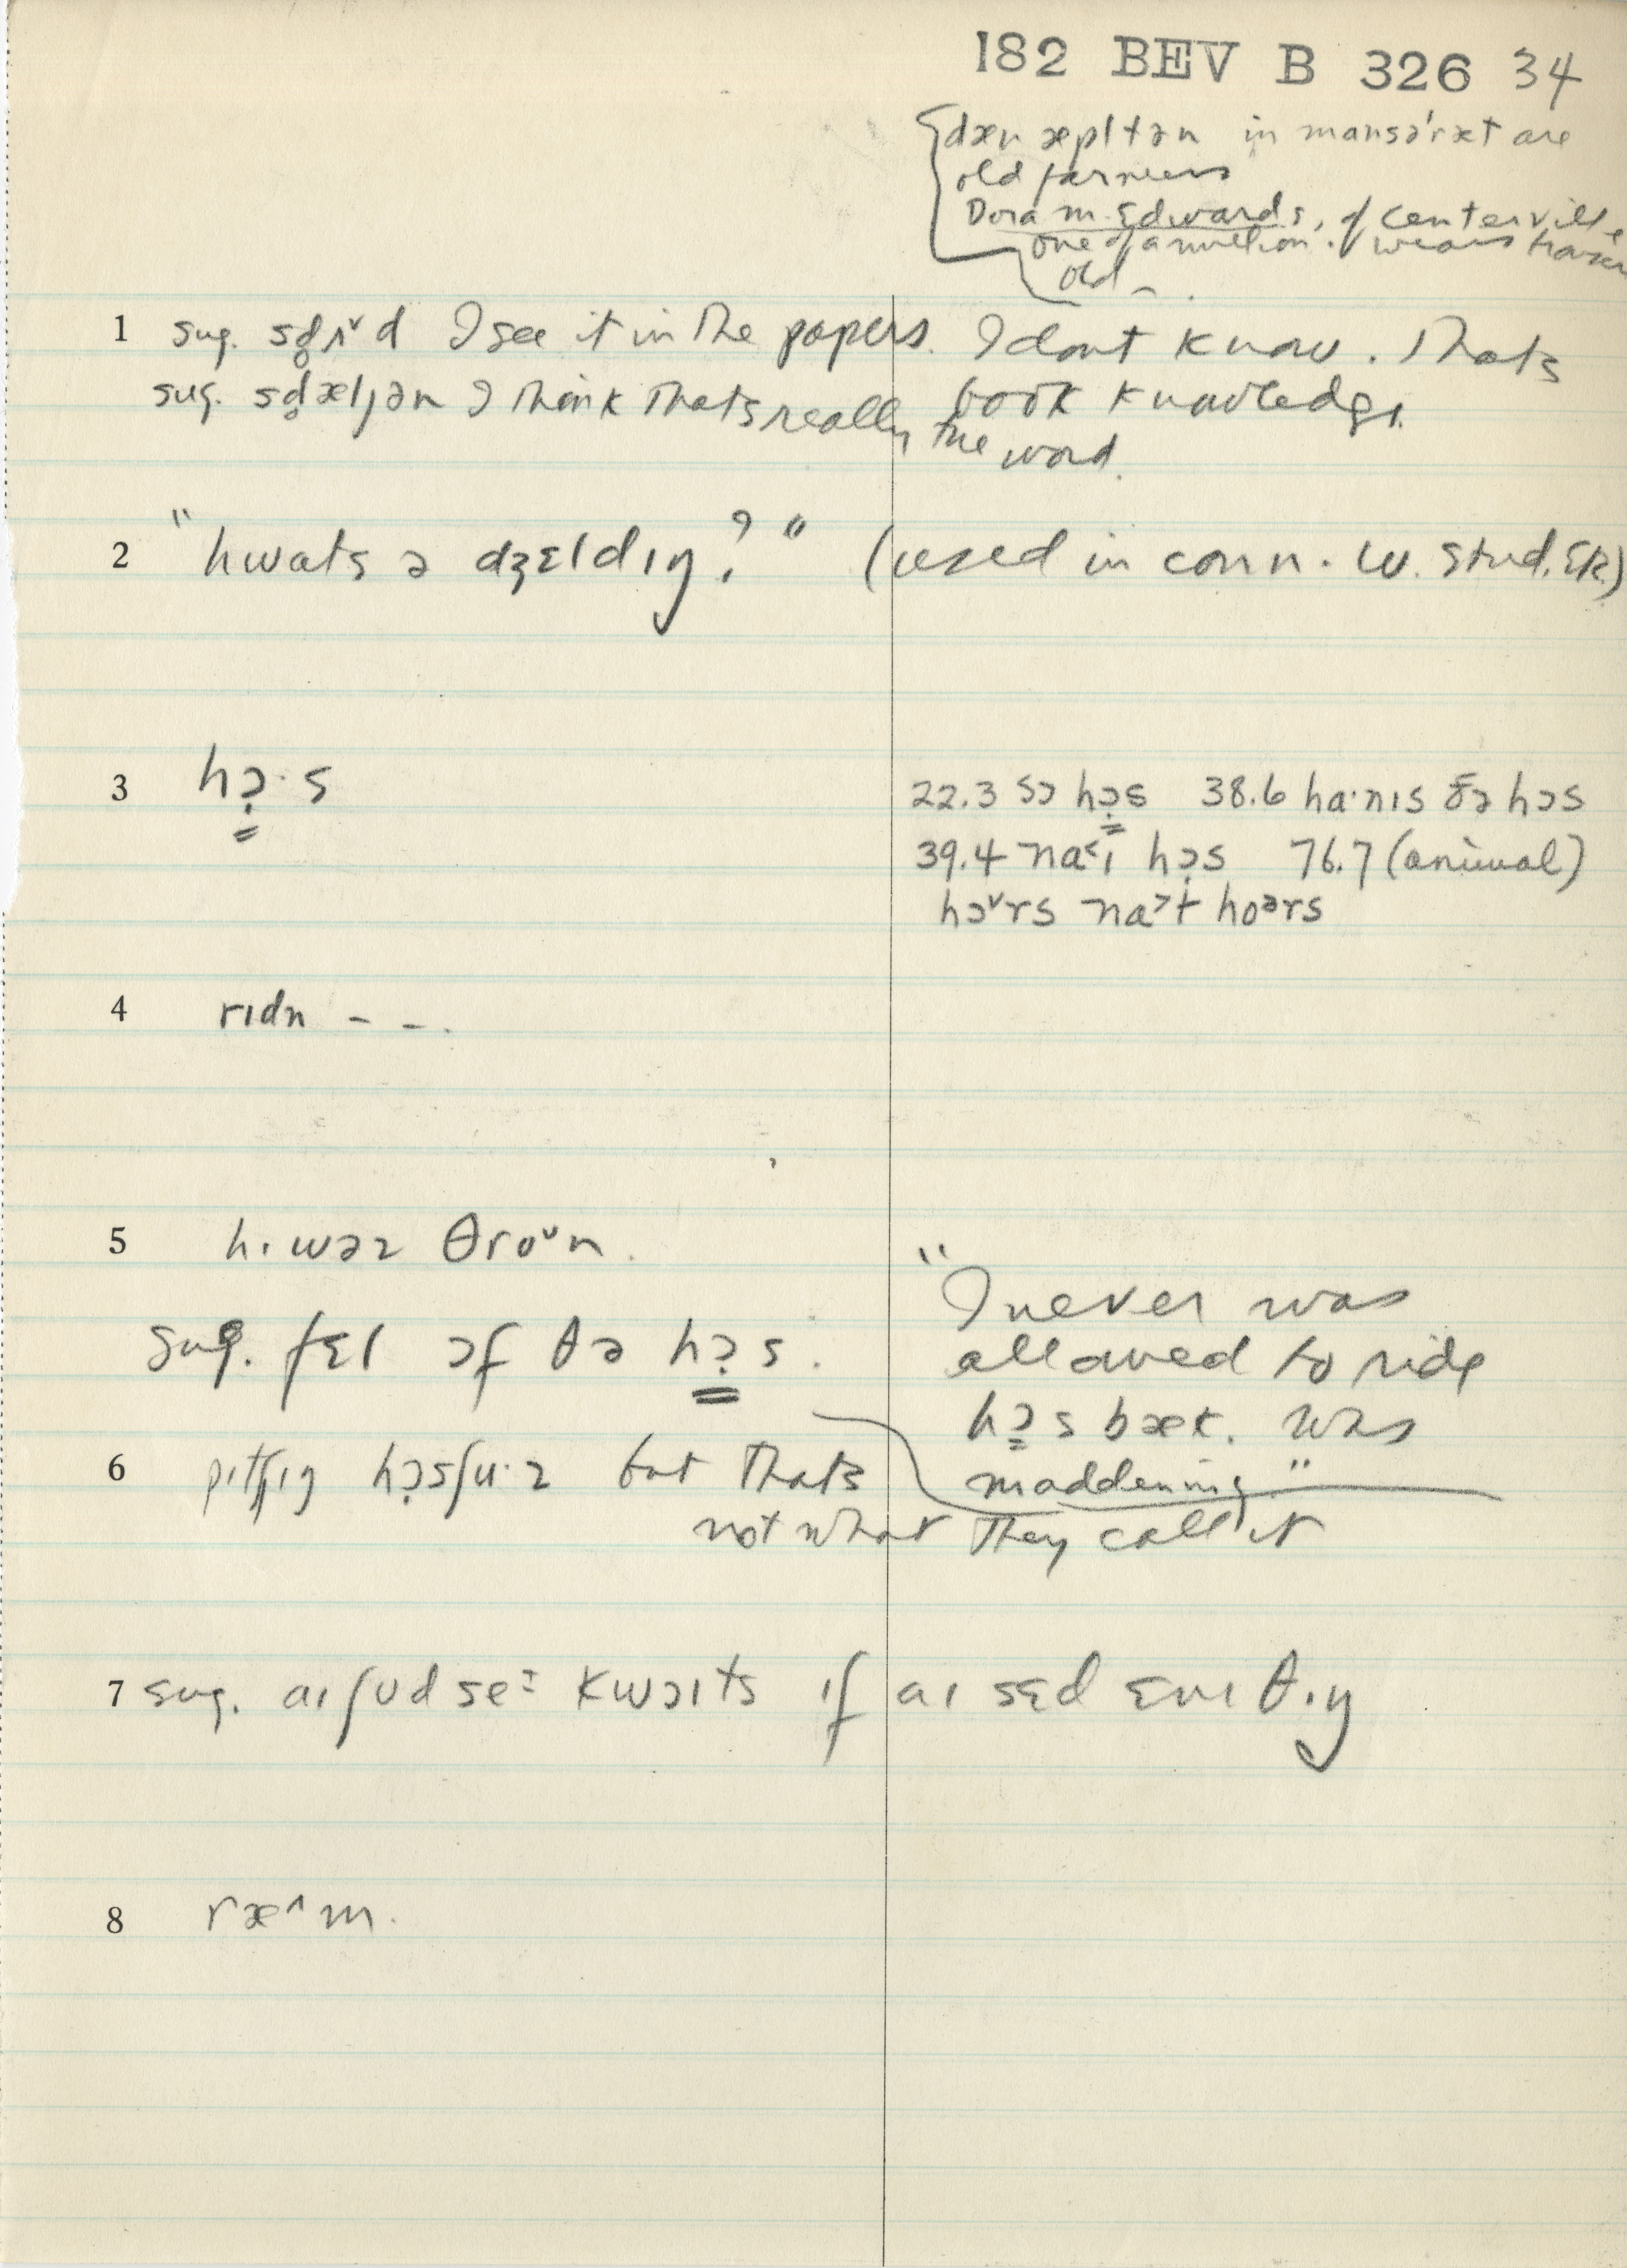 182 BEV B 326 34
dæn æpltən in mansə'ræt are
old farmers
Dora M. Edwards, of Centerville
one of a million. wears
old
1 sug. sd̥ɪˇd I see it in the papers. I dont know. Thats
book knowledge.
sug. sd̥æljən I think thats really the word.
2 "hwats ə dʒɛldɪŋ?" (used in conn. w. stud.
3 hɔ̣·s
22.3 sɔ hɔ̣s 38.6 ha·nɪs ðə hɔs
39.4 hɔ̣s 76.7 (animal)
hɔˇrs na˃t hoərs
4 rɪdn - - .
5 hɪ wəz θroˇn.
sug. fɛl ɔf θə hɔ̣s.
"I never was
allowed to ride
hɔ̣s bæk. was
maddening"
6 pɪtʃɪŋ hɔ̣sʃu·z but thats
not what they call it
7 sug. aɪ ʃʊd se: kwɔɪts ɪf aɪ sɛd ɛnɪ θɪŋ
8 ræ^m.